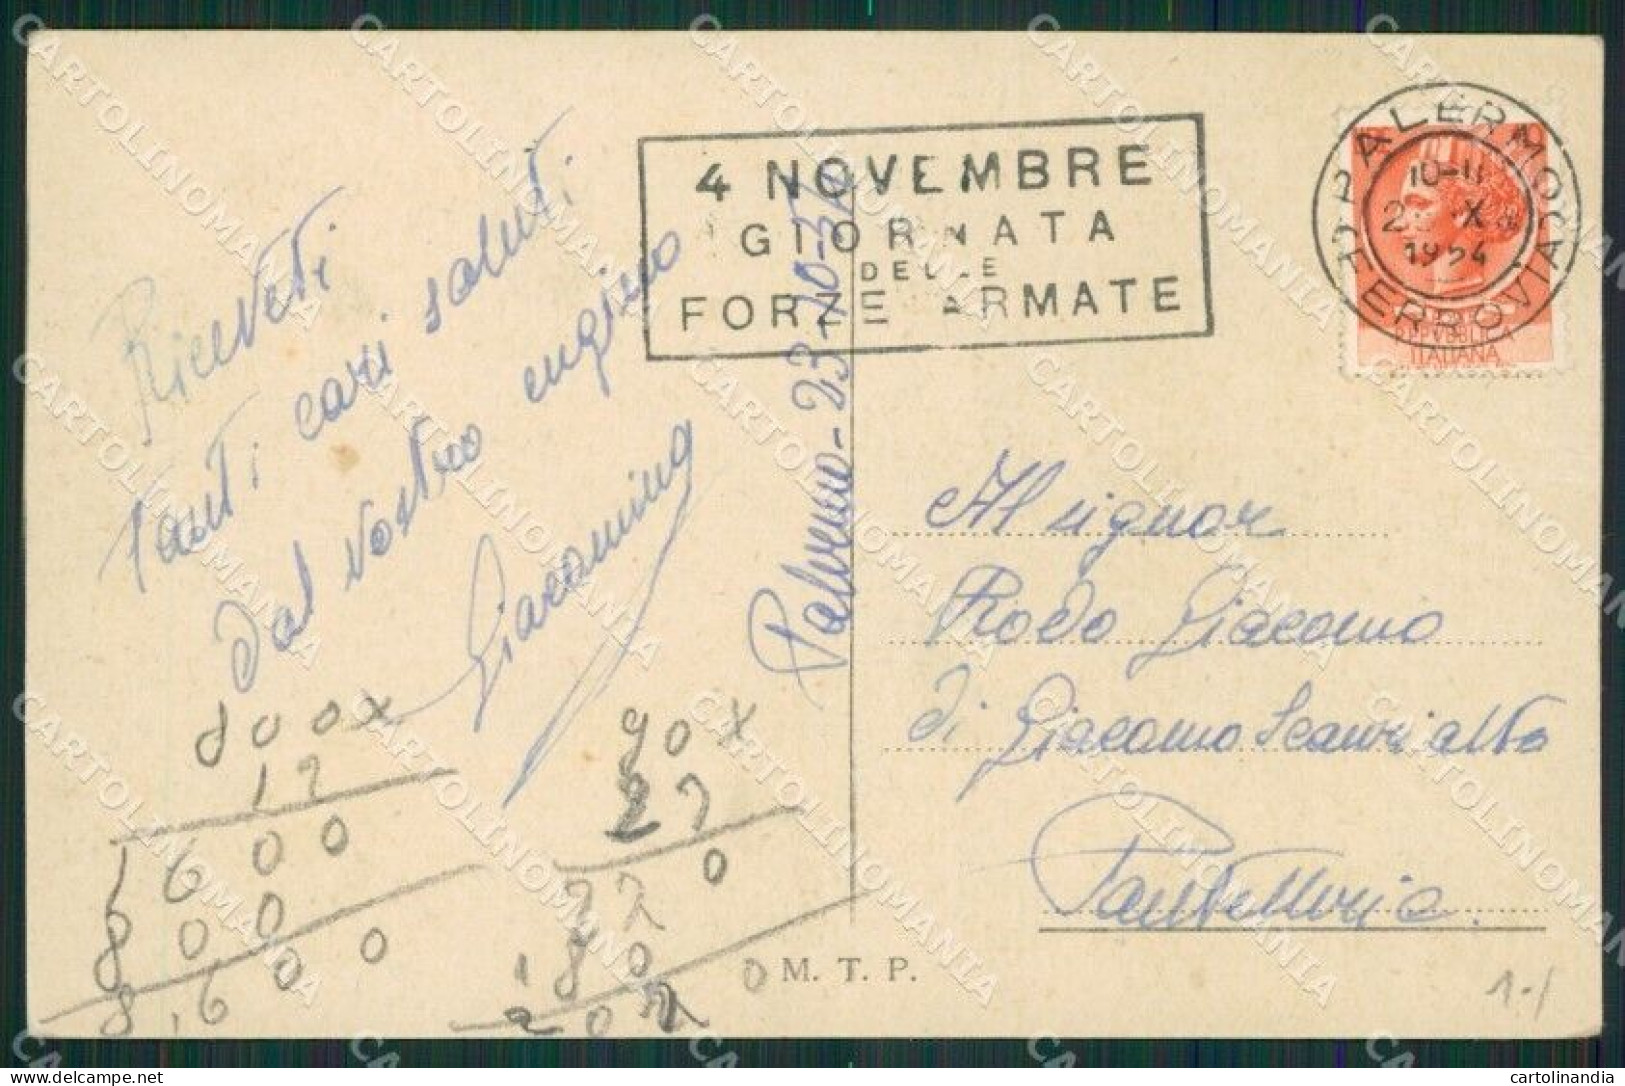 4 NOVEMBRE
GIORNATA
DELLE
FORZE ARMATE
PALERMO
FERROVIA
10-11
X
1954
REPUBBLICA
ITALIANA
Riceveti
tanti cari saluti
dal vostro cugino
Giacomino
Palermo-23-10-54
Al signor
Rodo Giacomo
di Giacomo Scauri alto
Pantelleria.
800x
12
1600
800
8.600
90x
27
0
180
M. T. P.
CARTOLINOMANIA
cartolinandia